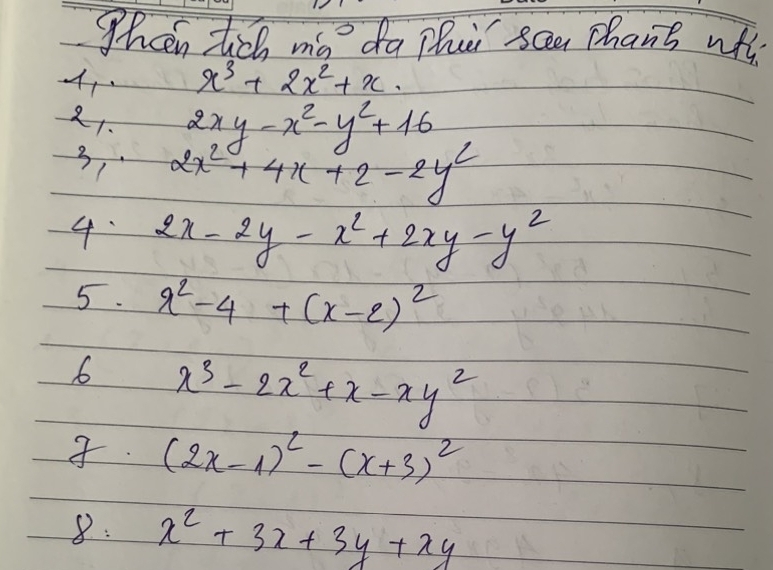 Phân tích mỗi đa thức sau thành
1, x³ + 2x² + x.
2, 2xy - x² - y² + 16
3, 2x² + 4x + 2 - 2y²
4. 2x - 2y - x² + 2xy - y²
5. x² - 4 + (x - 2)²
6 x³ - 2x² + x - xy²
7. (2x - 1)² - (x + 3)²
8. x² + 3x + 3y + xy